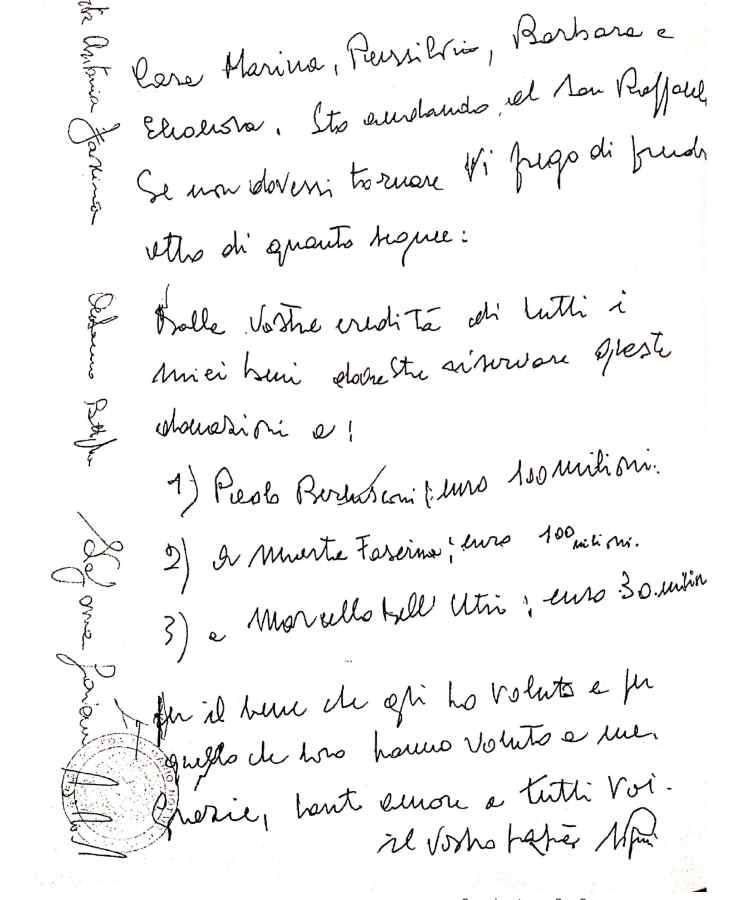 Cara Marina, Piersilvio, Barbara e
Eleonora. Sto andando al San Raffael
Se non dovessi tornare Vi prego di prend
atto di quanto segue:
Dalla vostra eredità di tutti i
miei beni dovreste riservare queste
donazioni a:
1) Paolo Berlusconi: euro 100 milioni.
2) a Marta Fascina; euro 100 milioni.
3) a Marcello Dell'Utri; euro 30 milion
Per il bene che gli ho voluto e per
quello che loro hanno voluto a me.
Grazie, tanto amore a tutti voi.
il vostro papà
Antonia Fascina